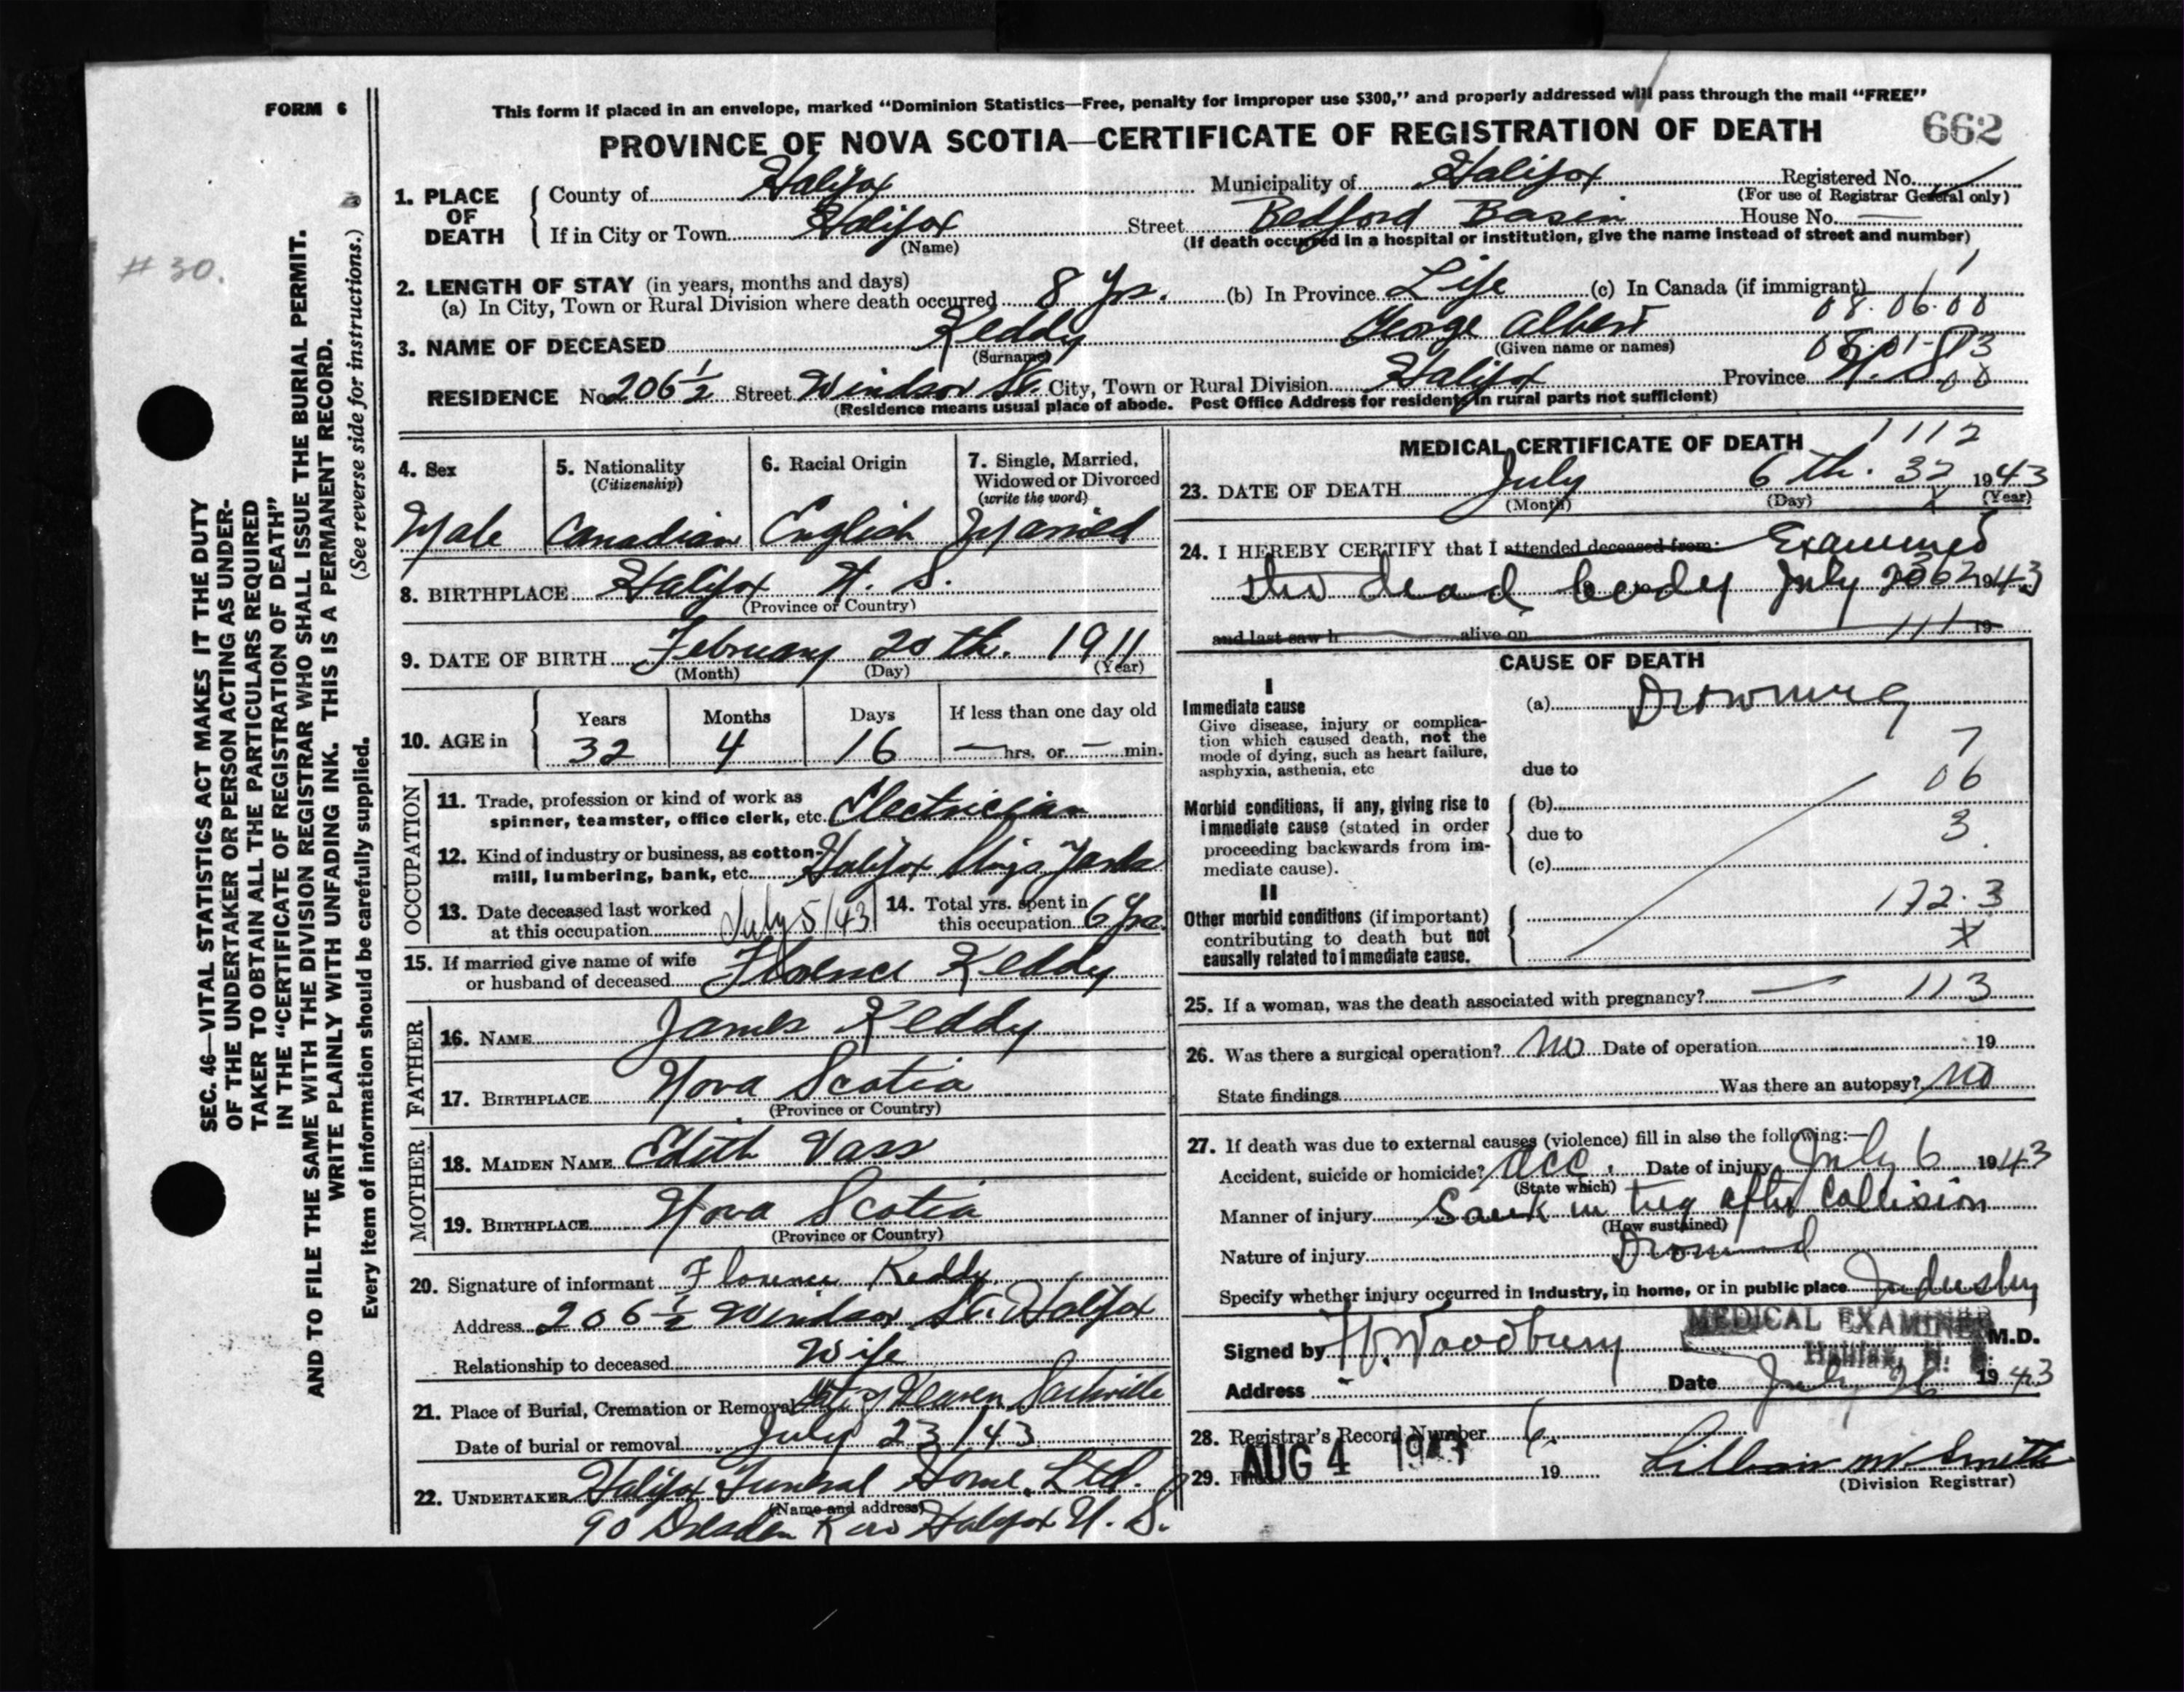 FORM 6
This form if placed in an envelope, marked “Dominion Statistics—Free, penalty for improper use $300,” and properly addressed will pass through the mail “FREE”
PROVINCE OF NOVA SCOTIA—CERTIFICATE OF REGISTRATION OF DEATH
662
1. PLACE OF DEATH
County of Halifax Municipality of Halifax Registered No.
(For use of Registrar General only)
If in City or Town Halifax Street Bedford Basin House No. —
(Name) (If death occurred in a hospital or institution, give the name instead of street and number)
# 30.
2. LENGTH OF STAY (in years, months and days)
(a) In City, Town or Rural Division where death occurred 8 Yrs. (b) In Province Life (c) In Canada (if immigrant)
08.06.00
3. NAME OF DECEASED Keddy George Albert
(Surname) (Given name or names)
RESIDENCE No 206½ Street Windsor St. City, Town or Rural Division Halifax Province N. S.
(Residence means usual place of abode. Post Office Address for residents in rural parts not sufficient)
SEC. 46—VITAL STATISTICS ACT MAKES IT THE DUTY
OF THE UNDERTAKER OR PERSON ACTING AS UNDER-
TAKER TO OBTAIN ALL THE PARTICULARS REQUIRED
IN THE “CERTIFICATE OF REGISTRATION OF DEATH”
AND TO FILE THE SAME WITH THE DIVISION REGISTRAR WHO SHALL ISSUE THE BURIAL PERMIT.
WRITE PLAINLY WITH UNFADING INK. THIS IS A PERMANENT RECORD.
(See reverse side for instructions.)
Every item of information should be carefully supplied.
4. Sex
Male
5. Nationality
(Citizenship)
Canadian
6. Racial Origin
English
7. Single, Married,
Widowed or Divorced
(write the word)
Married
8. BIRTHPLACE Halifax N. S.
(Province or Country)
9. DATE OF BIRTH February 20th. 1911
(Month) (Day) (Year)
10. AGE in
Years Months Days If less than one day old
32 4 16 — hrs. or — min.
OCCUPATION
11. Trade, profession or kind of work as
spinner, teamster, office clerk, etc. Electrician
12. Kind of industry or business, as cotton-
mill, lumbering, bank, etc. Halifax Ships Yards
13. Date deceased last worked
at this occupation July 5/43
14. Total yrs. spent in
this occupation 6 Yrs.
15. If married give name of wife
or husband of deceased Florence Keddy
FATHER
16. NAME James Keddy
17. BIRTHPLACE Nova Scotia
(Province or Country)
MOTHER
18. MAIDEN NAME Edith Vass
19. BIRTHPLACE Nova Scotia
(Province or Country)
20. Signature of informant Florence Keddy.
Address 206½ Windsor St. Halifax
Relationship to deceased Wife
21. Place of Burial, Cremation or Removal Gate of Heaven Sackville
Date of burial or removal July 23/43
22. UNDERTAKER Halifax Funeral Home Ltd.
(Name and address)
90 Dresden Row Halifax N. S.
MEDICAL CERTIFICATE OF DEATH
1112
23. DATE OF DEATH July 6th. 32 1943
(Month) (Day) (Year)
24. I HEREBY CERTIFY that I attended deceased from: Examined
the dead body July 1943
and last saw h alive on 19
111
CAUSE OF DEATH
I
Immediate cause
Give disease, injury or complica-
tion which caused death, not the
mode of dying, such as heart failure,
asphyxia, asthenia, etc
(a) Drowning
7
due to
06
Morbid conditions, if any, giving rise to
immediate cause (stated in order
proceeding backwards from im-
mediate cause).
(b)
due to
3
(c)
II
Other morbid conditions (if important)
contributing to death but not
causally related to immediate cause.
172.3
X
25. If a woman, was the death associated with pregnancy? — 113
26. Was there a surgical operation? No Date of operation 19
State findings Was there an autopsy? No
27. If death was due to external causes (violence) fill in also the following:—
Accident, suicide or homicide? Acc. Date of injury July 6 1943
(State which)
Manner of injury Sank in tug after Collision
(How sustained)
Nature of injury Drowned
Specify whether injury occurred in Industry, in home, or in public place Industry
MEDICAL EXAMINER
Signed by Woodbury M.D.
Halifax, N. S.
Address Date July 26 1943
28. Registrar's Record Number 6.
AUG 4 1943
29. 19 Lillian M Smith
(Division Registrar)